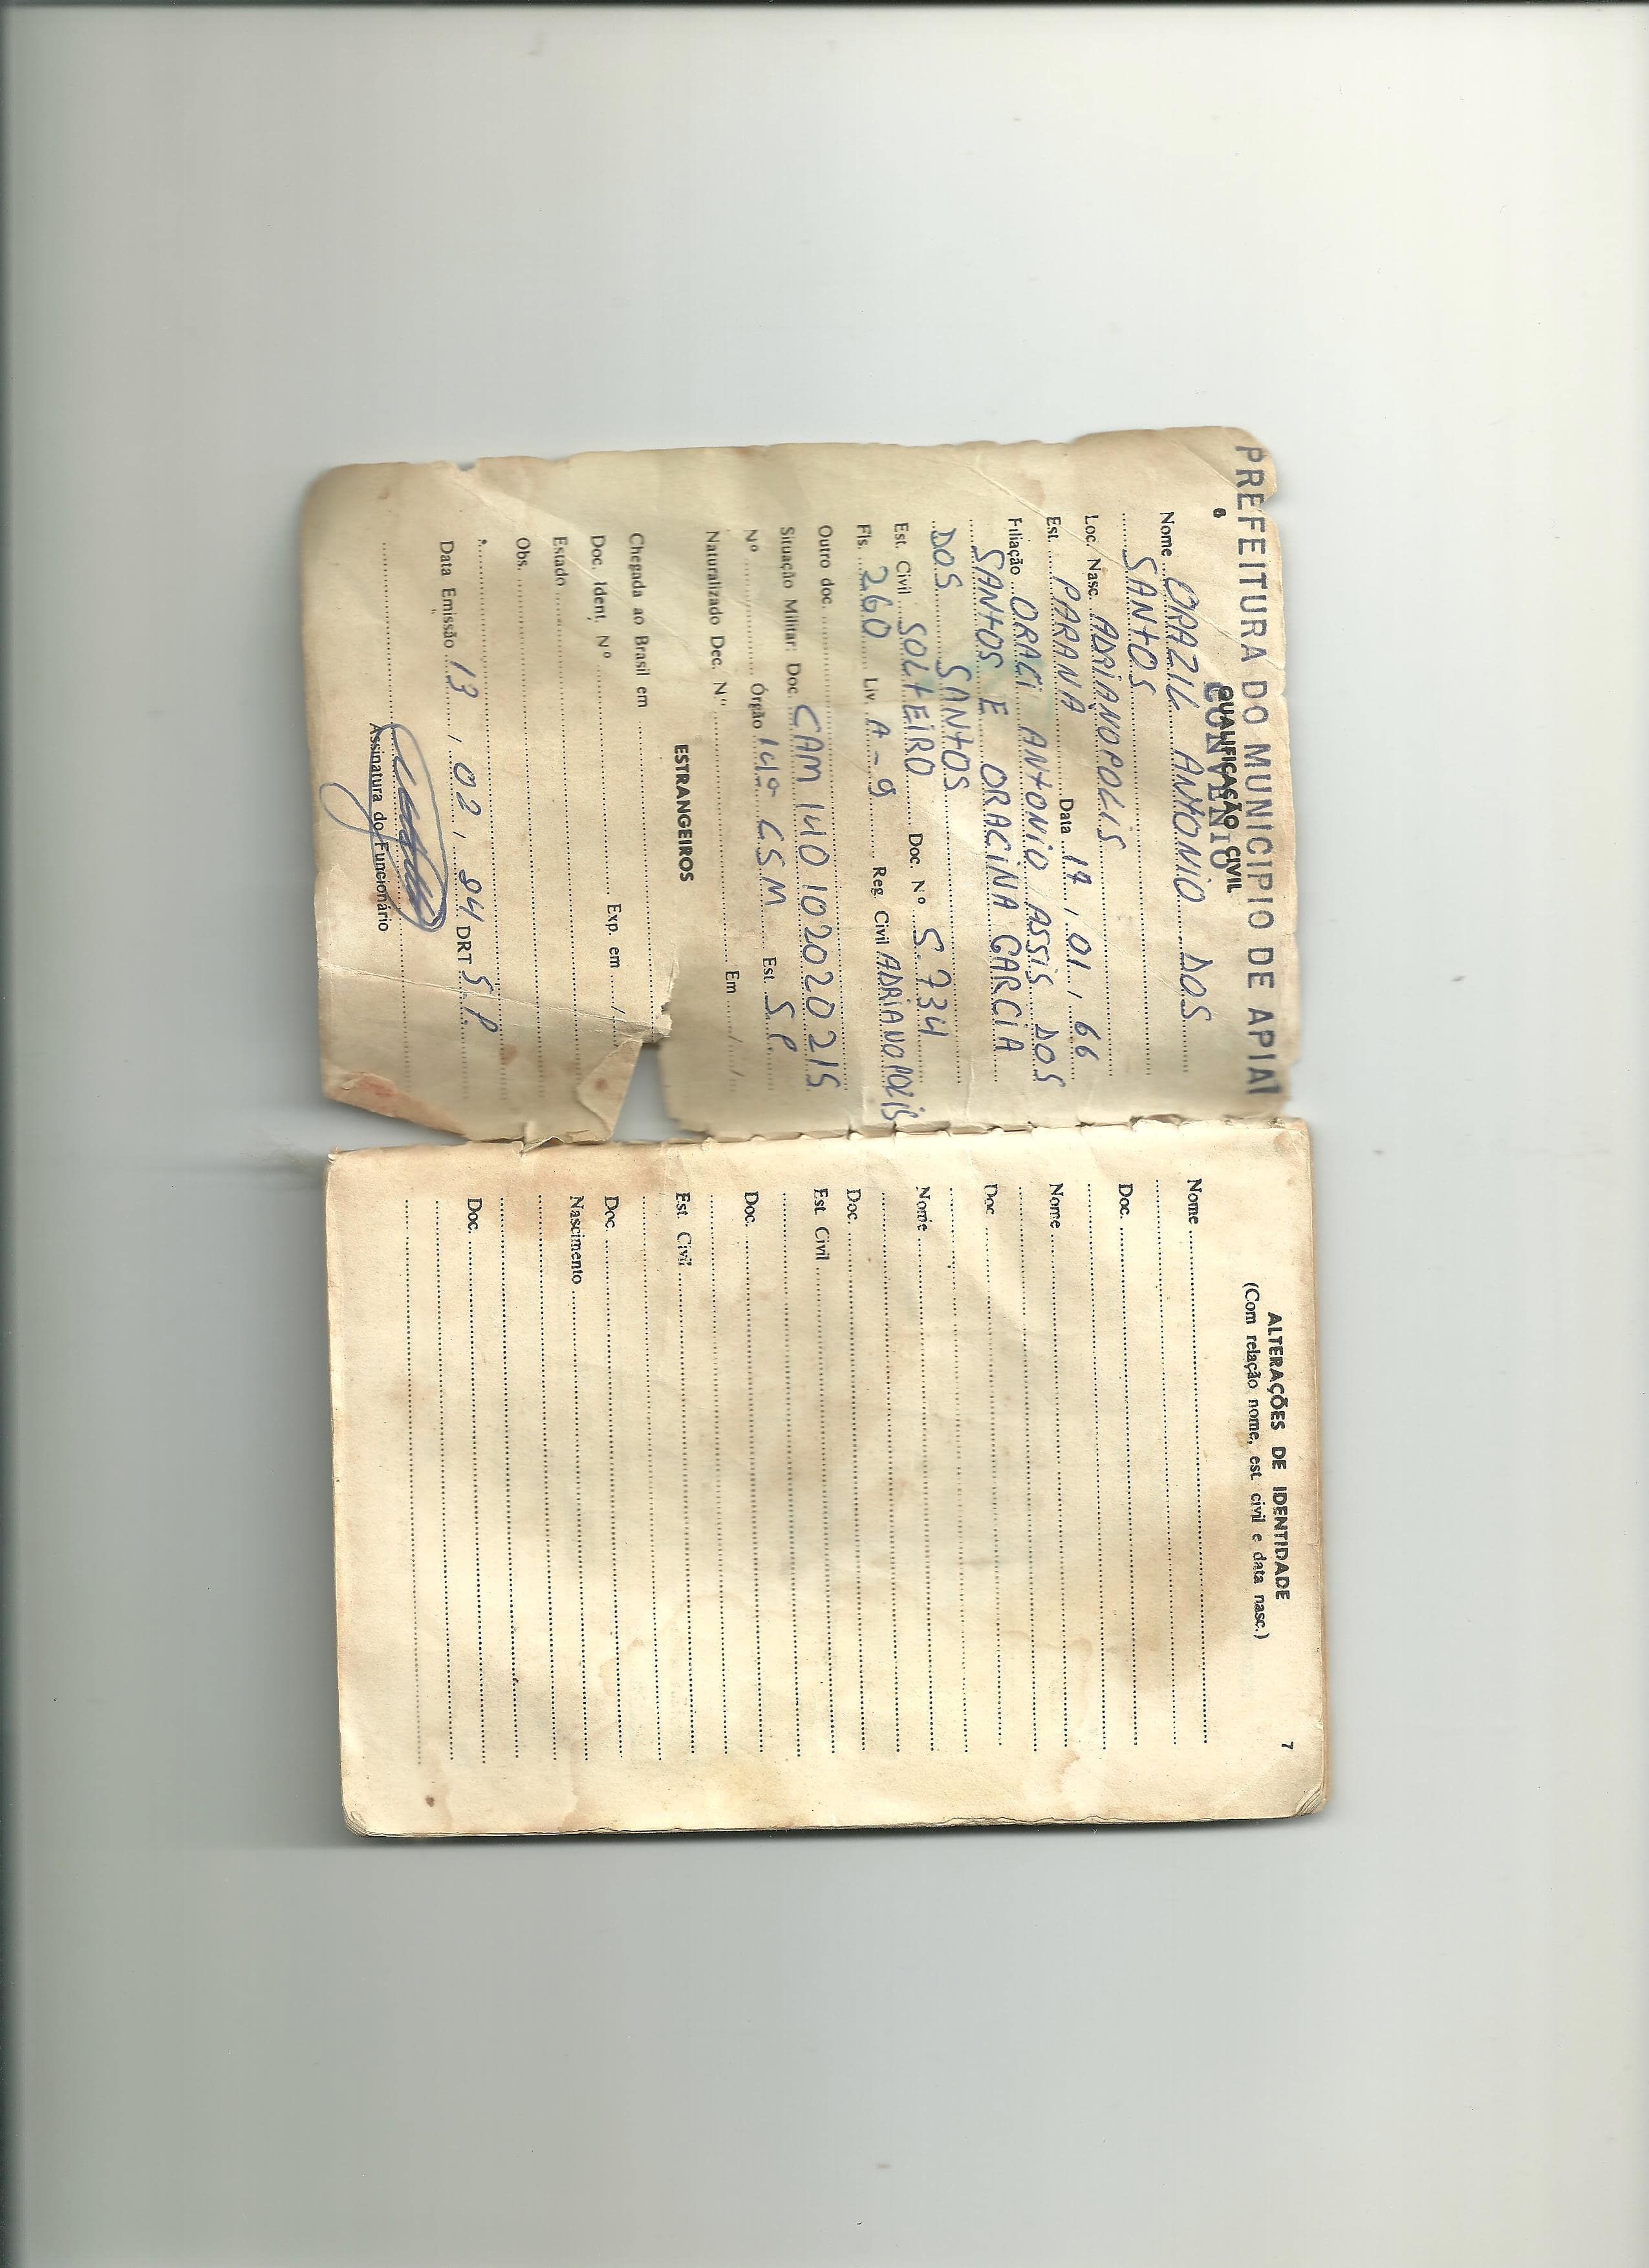 PREFEITURA DO MUNICIPIO DE APIAI
CONVENIO
6
QUALIFICAÇÃO CIVIL
Nome ORAZIL ANTONIO DOS
SANTOS
Loc. Nasc. ADRIANOPOLIS
Est. PARANA Data 17 / 01 / 66
Filiação ORACI ANTONIO ASSIS DOS
SANTOS E ORACINA GARCIA
DOS SANTOS
Est. Civil SOLTEIRO Doc. Nº 5.734
Fls. 260 Liv. A-9 Reg. Civil ADRIANOPOLIS
Outro doc.
Situação Militar: Doc. CAM 140102020215
Nº Órgão 14ª C.S.M Est. S.P
Naturalizado Dec. Nº Em / /
ESTRANGEIROS
Chegada ao Brasil em
Doc. Ident. Nº Exp. em /
Estado
Obs.
Data Emissão 13 / 02 / 84 DRT S.P
Assinatura do Funcionário
7
ALTERAÇÕES DE IDENTIDADE
(Com relação nome, est. civil e data nasc.)
Nome
Doc.
Nome
Doc
Nome
Doc.
Est. Civil
Doc.
Est. Civil
Doc.
Nascimento
Doc.